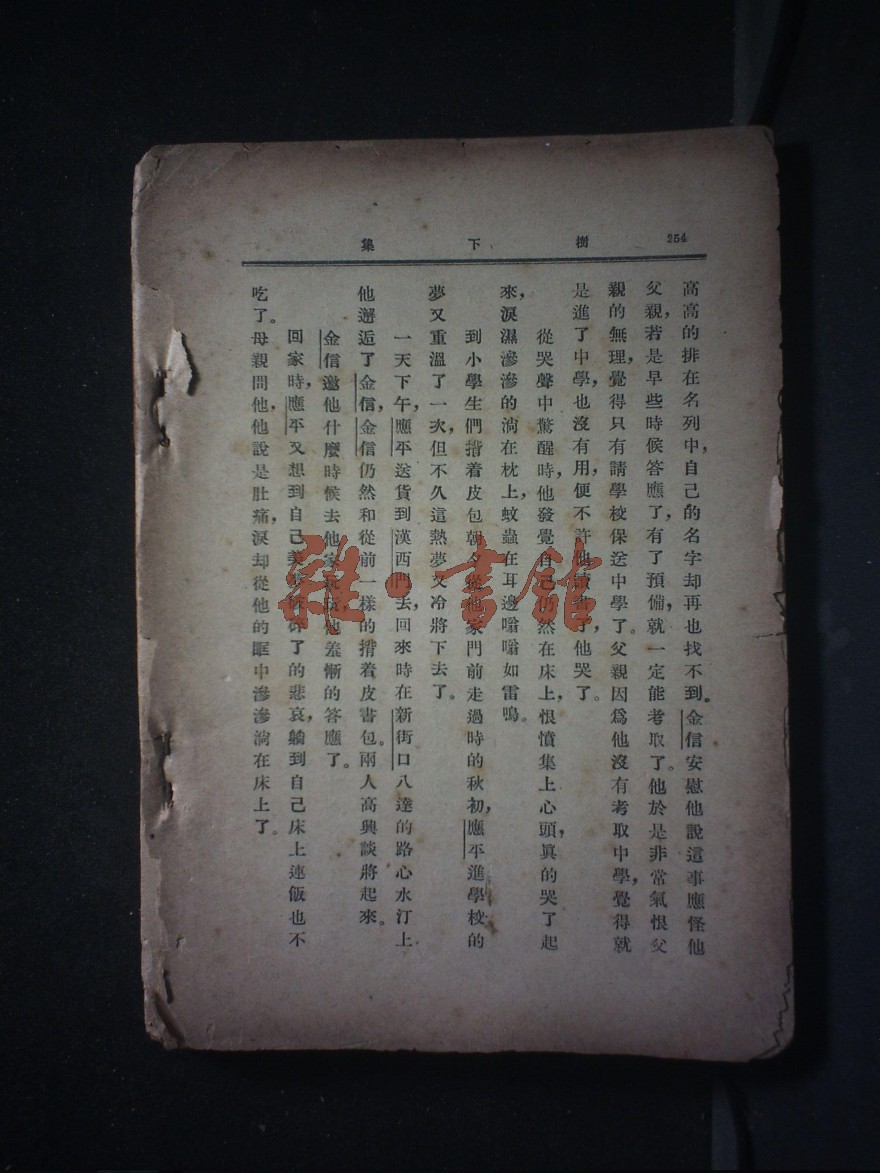 254
樹下集
高高的排在名列中，自己的名字却再也找不到。金信安慰他說這事應怪他
父親，若是早些時候答應了，有了預備，就一定能考取了。他於是非常氣恨父
親的無理，覺得只有請學校保送中學了。父親因爲他沒有考取中學，覺得就
是進了中學，也沒有用，便不許他讀書了，他哭了。
從哭聲中驚醒時，他發覺自己仍然在床上，恨憤集上心頭，眞的哭了起
來，淚濕滲滲的淌在枕上，蚊蟲在耳邊嗡嗡如雷鳴。
到小學生們揹着皮包朝夕從他家門前走過時的秋初，應平進學校的
夢又重溫了一次，但不久這熱夢又冷將下去了。
一天下午，應平送貨到漢西門去，回來時在新街口八達的路心水汀上
他邂逅了金信，金信仍然和從前一樣的揹着皮書包。兩人高興談將起來。
金信邀他什麼時候去他家玩玩，他羞慚的答應了。
回家時，應平又想到自己美夢被碎了的悲哀，躺到自己床上連飯也不
吃了。母親問他，他說是肚痛，淚却從他的眶中滲滲淌在床上了。
雜·書館